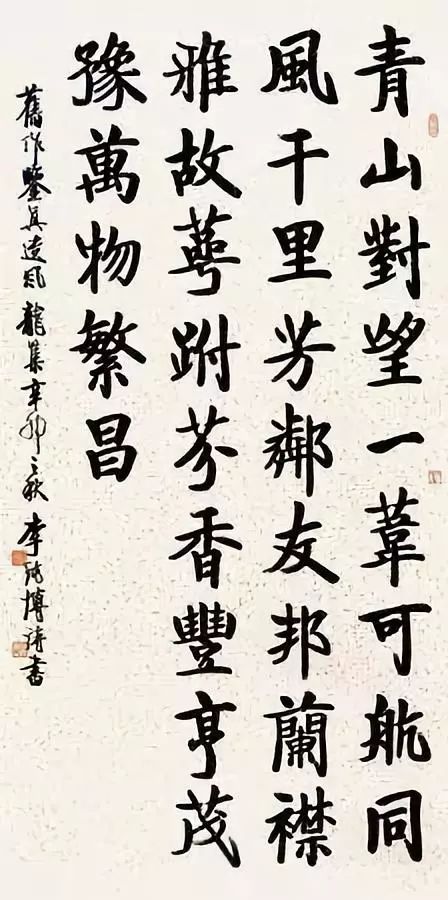 青山對望一葦可航同
風千里芳鄰友邦蘭襟
雅故萼跗芬香豐亨茂
豫萬物繁昌
舊作鑒真遺風龍集辛卯之秋李博清書